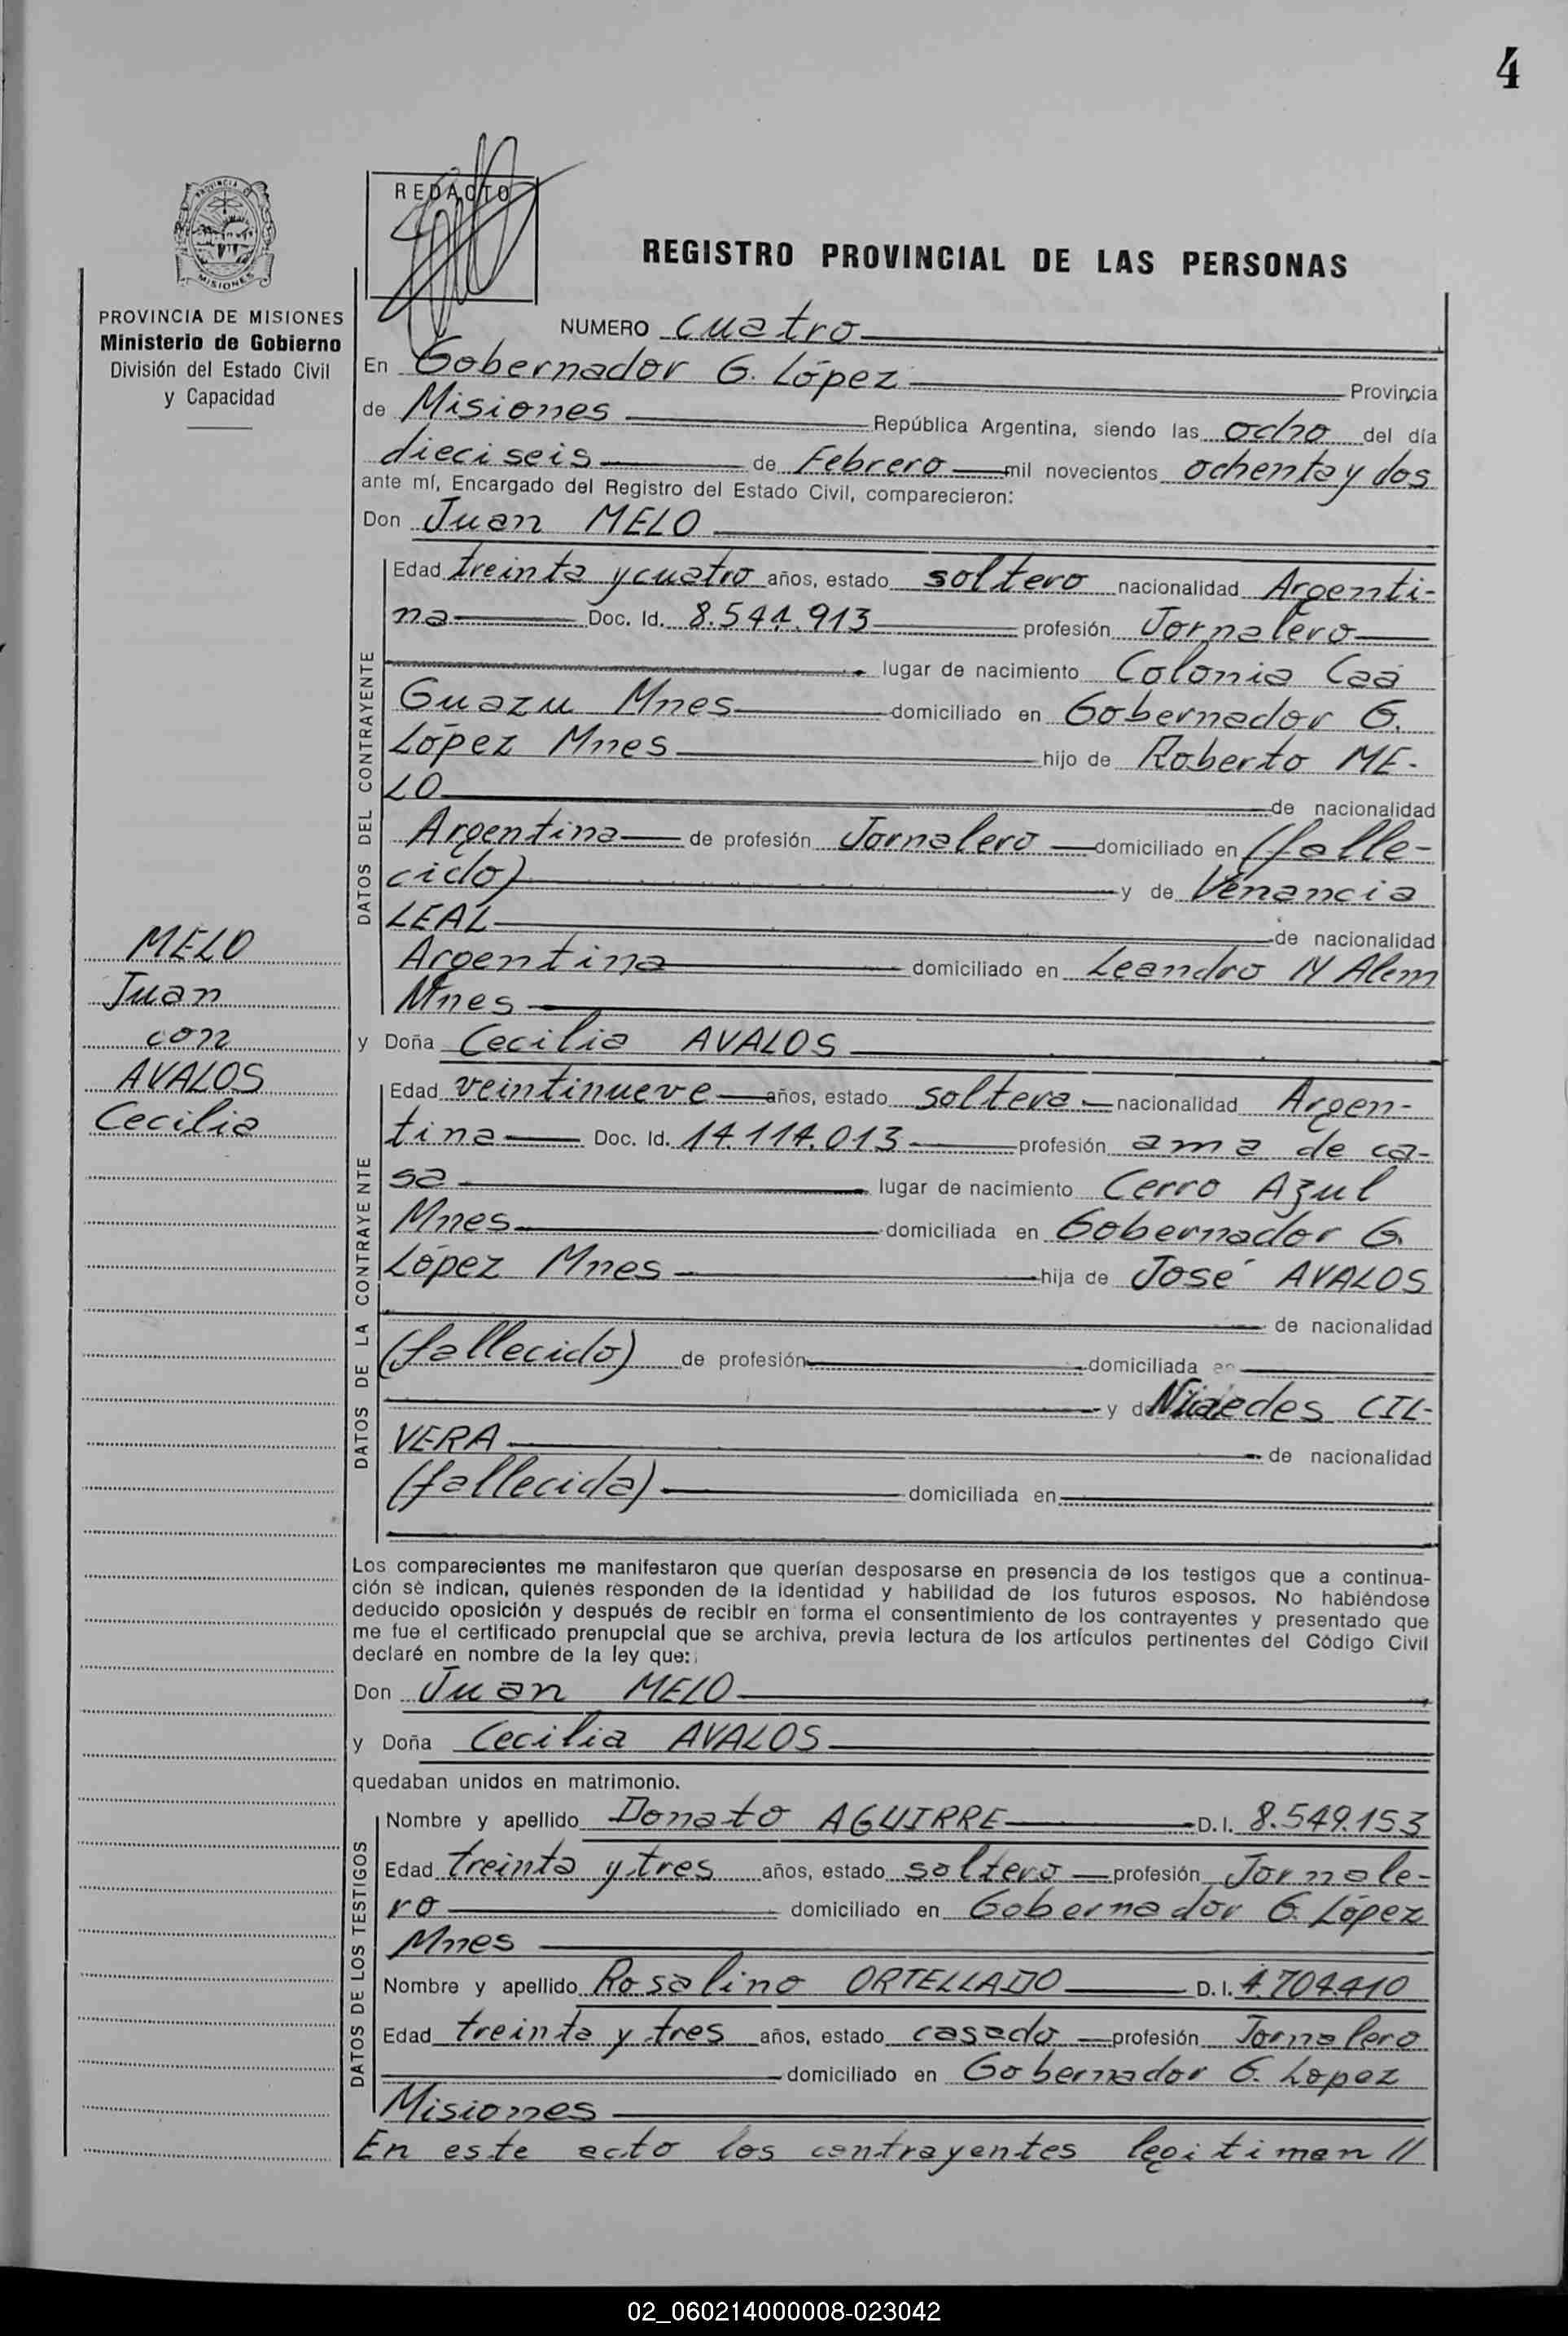 4
PROVINCIA DE
MISIONES
REDACTO
REGISTRO PROVINCIAL DE LAS PERSONAS
PROVINCIA DE MISIONES
Ministerio de Gobierno
División del Estado Civil
y Capacidad
NUMERO cuatro
En Gobernador G. López Provincia
de Misiones República Argentina, siendo las ocho del día
dieciseis de Febrero mil novecientos ochenta y dos
ante mí, Encargado del Registro del Estado Civil, comparecieron:
Don Juan MELO
DATOS DEL CONTRAYENTE
Edad treinta y cuatro años, estado soltero nacionalidad Argenti-
na Doc. Id. 8.541.913 profesión Jornalero
lugar de nacimiento Colonia Caá
Guazu Mnes domiciliado en Gobernador G.
López Mnes hijo de Roberto ME-
LO de nacionalidad
Argentina de profesión Jornalero domiciliado en (falle-
cido) y de Venancia
LEAL de nacionalidad
Argentina domiciliado en Leandro N Alem
Mnes
MELO
Juan
con
AVALOS
Cecilia
y Doña Cecilia AVALOS
DATOS DE LA CONTRAYENTE
Edad veintinueve años, estado soltera nacionalidad Argen-
tina Doc. Id. 14.114.013 profesión ama de ca-
sa lugar de nacimiento Cerro Azul
Mnes domiciliada en Gobernador G
López Mnes hija de José AVALOS
de nacionalidad
(fallecido) de profesión domiciliada en
y de CIL-
VERA de nacionalidad
(fallecida) domiciliada en
Los comparecientes me manifestaron que querían desposarse en presencia de los testigos que a continua-
ción se indican, quienes responden de la identidad y habilidad de los futuros esposos. No habiéndose
deducido oposición y después de recibir en forma el consentimiento de los contrayentes y presentado que
me fue el certificado prenupcial que se archiva, previa lectura de los artículos pertinentes del Código Civil
declaré en nombre de la ley que:
Don Juan MELO
y Doña Cecilia AVALOS
quedaban unidos en matrimonio.
DATOS DE LOS TESTIGOS
Nombre y apellido Donato AGUIRRE D.I. 8.549.153
Edad treinta y tres años, estado soltero profesión Jornale-
ro domiciliado en Gobernador G. López
Mnes
Nombre y apellido Rosalino ORTELLADO D.I. 4.704.410
Edad treinta y tres años, estado casado profesión Jornalero
domiciliado en Gobernador G. Lopez
Misiones
En este acto los contrayentes legitiman //
02_060214000008-023042